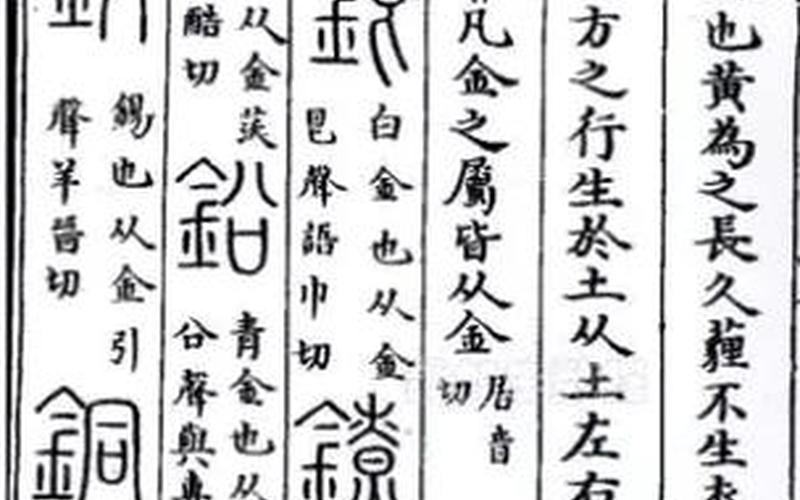 也黃為之長久薶不生衣
方之行生於土从土左右
凡金之屬皆从金居音切
銀白金也从金艮聲語巾切鐐
从金芺酷切鉛青金也从㕣聲與專
鈏錫也从金引聲羊晉切銅